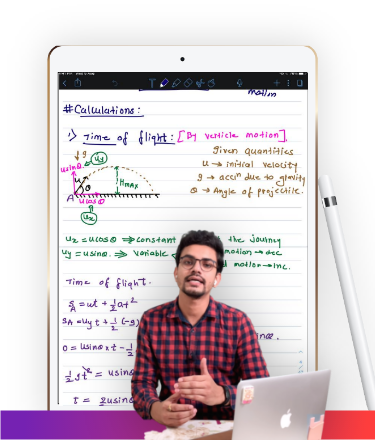 motion
# Calculations:
1) Time of flight: [By verticle motion].
Given quantities
u → initial velocity
g → accⁿ due to gravity
θ → Angle of projectile.
↓g
uy
usinθ
u
θ
Hmax
A
ucosθ
ux
ux = ucosθ ⇒ constant the journey
uy = usinθ ⇒ variable motion → dec
motion → Inc.
Time of flight.
SA = ut + 1/2 at²
SA = uy t + 1/2 (-g)
0 = usinθ x t - 1/2
1/2 gt² = usinθ
t = 2usinθ